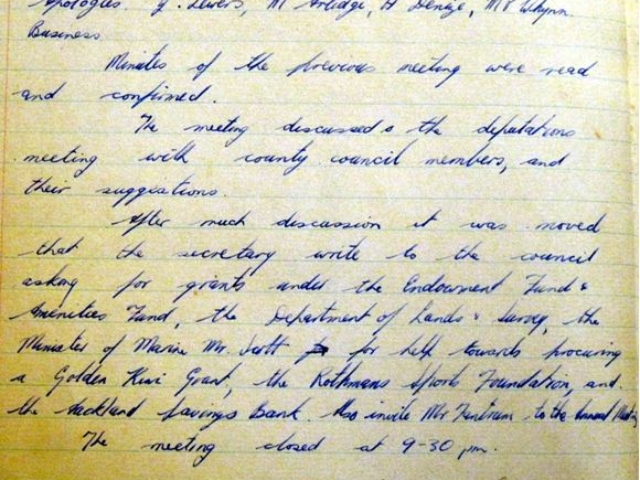 Apologies. J. Lewers, M Arlidge, A Denize, Mr Whynn.
Business
Minutes of the previous meeting were read
and confirmed.
The meeting discussed the deputations
meeting with county council members, and
their suggestions.
After much discussion it was moved
that the secretary write to the council
asking for grants under the Endowment Fund &
Amenities Fund, the Department of Lands & Survey, the
Minister of Marine Mr. Scott for help towards procuring
a Golden Kiwi Grant, the Rothmans Sports Foundation, and
the Auckland Savings Bank. Also invite Mr to the Annual Meeting
The meeting closed at 9-30 pm.